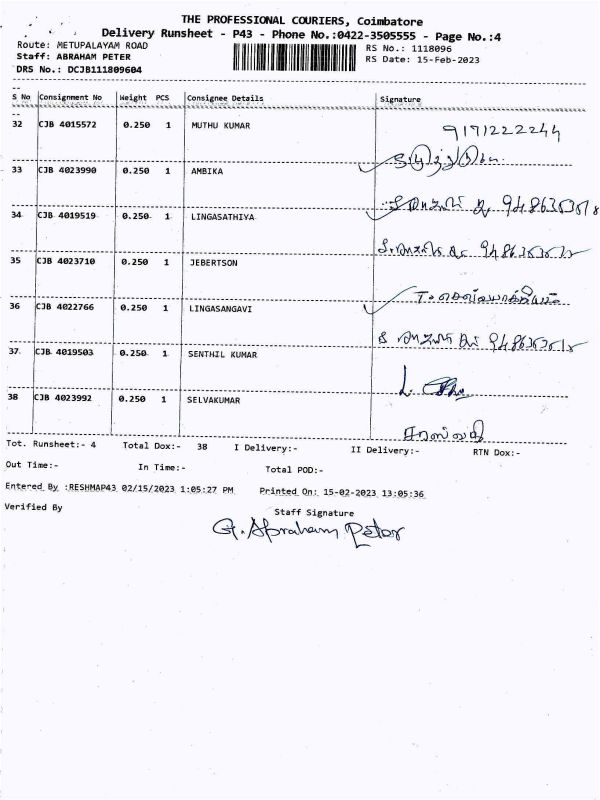 THE PROFESSIONAL COURIERS, Coimbatore
Delivery Runsheet - P43 - Phone No.:0422-3505555 - Page No.:4
Route: METUPALAYAM ROAD RS No.: 1118096
Staff: ABRAHAM PETER RS Date: 15-Feb-2023
DRS No.: DCJB111809604
S No Consignment No Weight PCS Consignee Details Signature
32 CJB 4015572 0.250 1 MUTHU KUMAR 9171222244
33 CJB 4023990 0.250 1 AMBIKA
34 CJB 4019519 0.250 1 LINGASATHIYA
35 CJB 4023710 0.250 1 JEBERTSON
36 CJB 4022766 0.250 1 LINGASANGAVI
37 CJB 4019503 0.250 1 SENTHIL KUMAR
38 CJB 4023992 0.250 1 SELVAKUMAR
Tot. Runsheet:- 4 Total Dox:- 38 I Delivery:- II Delivery:- RTN Dox:-
Out Time:- In Time:- Total POD:-
Entered By :RESHMAP43 02/15/2023 1:05:27 PM Printed On: 15-02-2023 13:05:36
Verified By Staff Signature
G. Abraham Peter